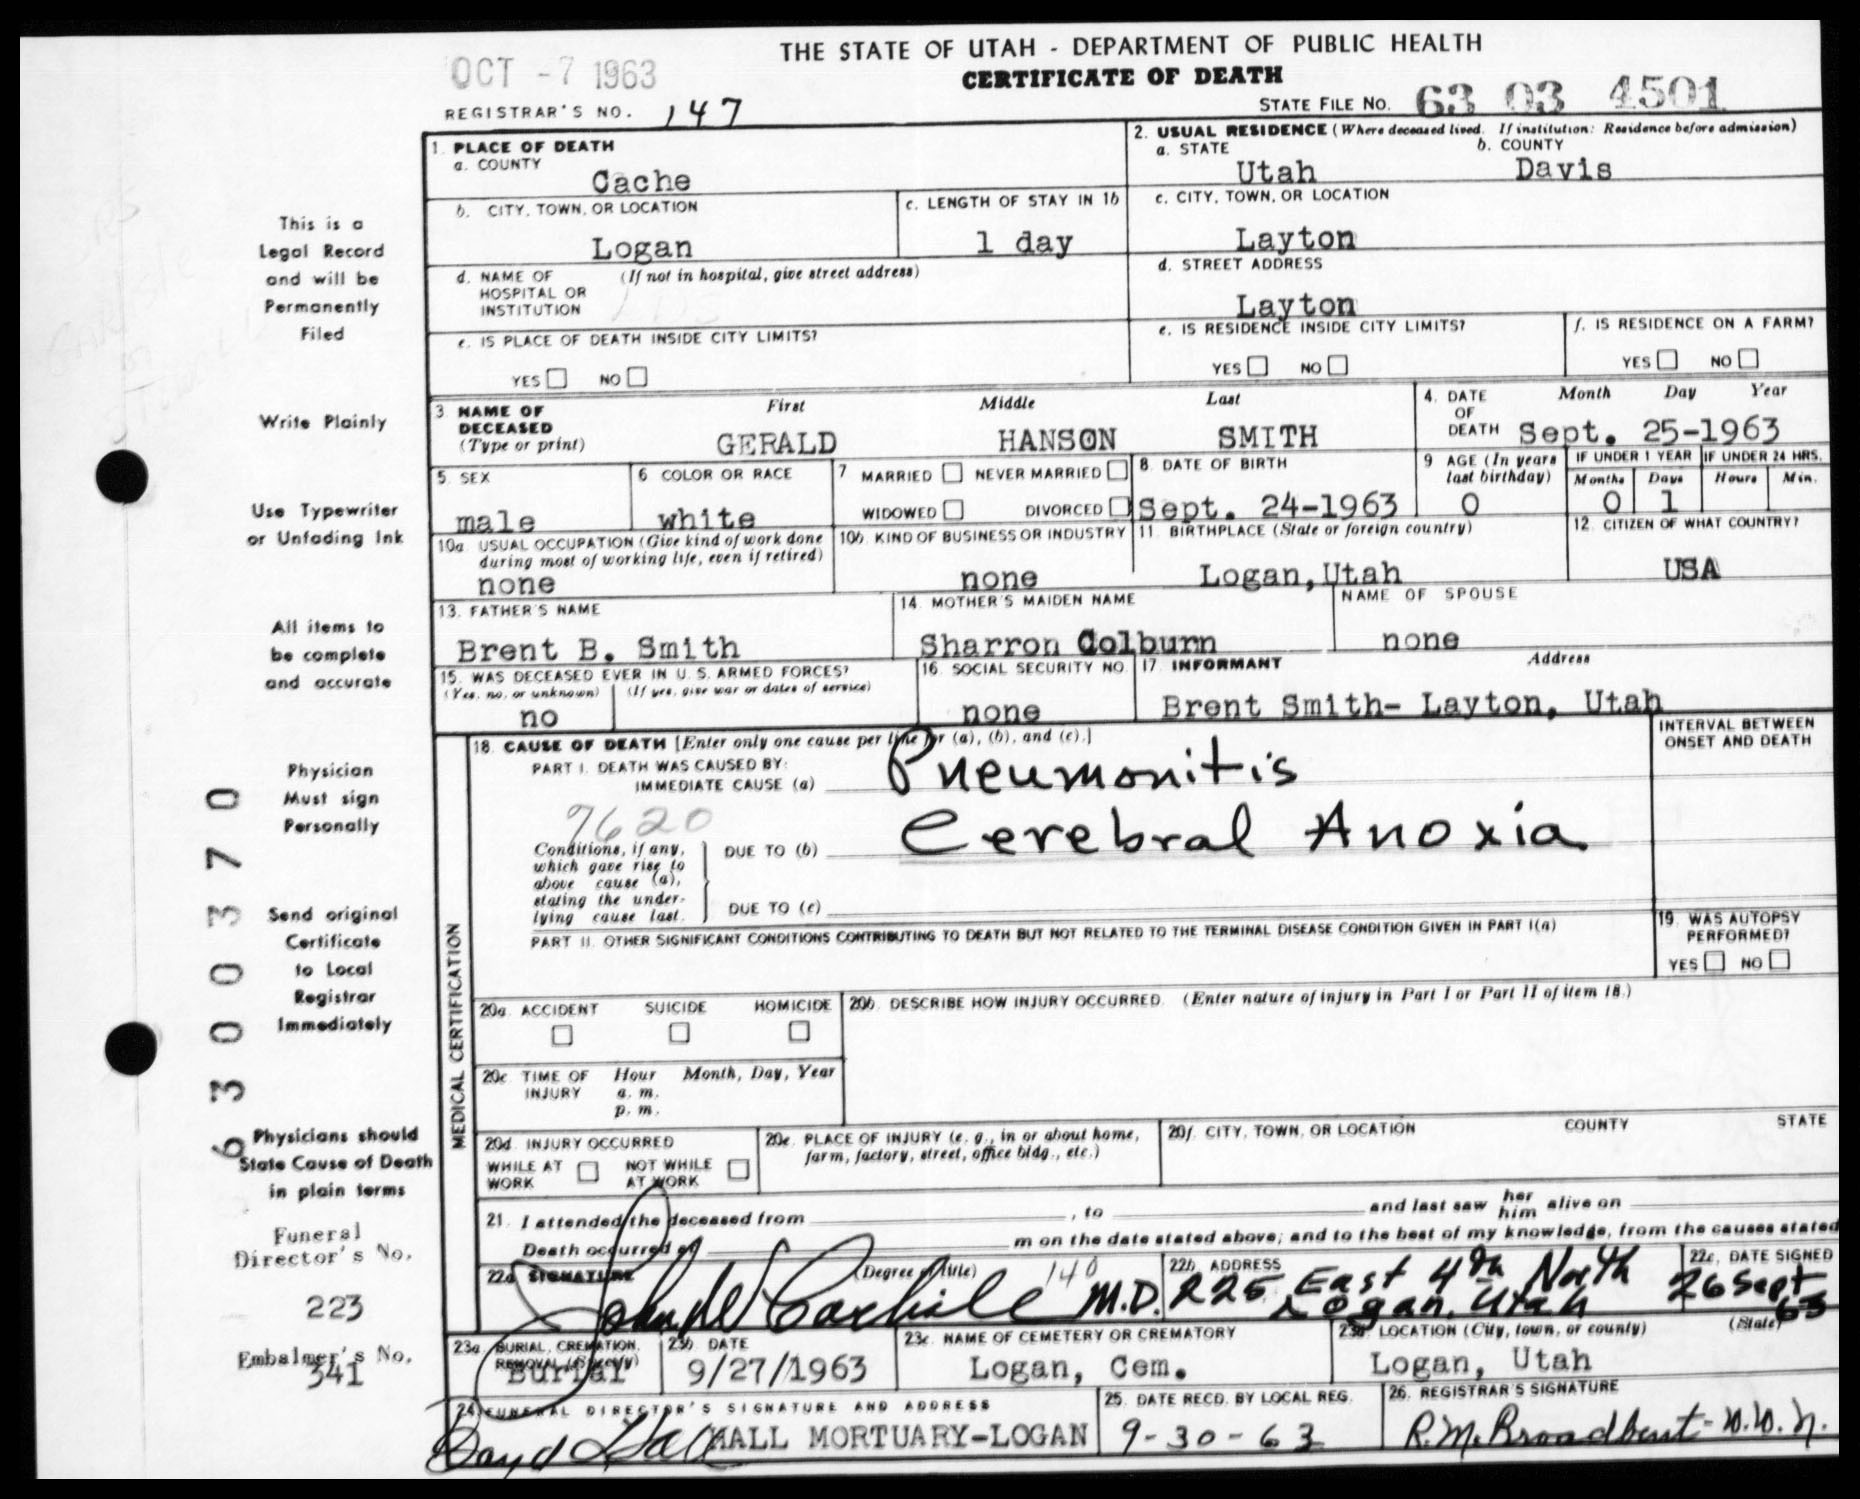 THE STATE OF UTAH - DEPARTMENT OF PUBLIC HEALTH
OCT -7 1963
CERTIFICATE OF DEATH
REGISTRAR'S NO. 147
STATE FILE NO. 63 03 4501
1. PLACE OF DEATH
a. COUNTY
Cache
2. USUAL RESIDENCE (Where deceased lived. If institution: Residence before admission)
a. STATE b. COUNTY
Utah Davis
b. CITY, TOWN, OR LOCATION
Logan
c. LENGTH OF STAY IN 1b
1 day
c. CITY, TOWN, OR LOCATION
Layton
d. NAME OF (If not in hospital, give street address)
HOSPITAL OR
INSTITUTION
d. STREET ADDRESS
Layton
e. IS PLACE OF DEATH INSIDE CITY LIMITS?
YES NO
e. IS RESIDENCE INSIDE CITY LIMITS?
YES NO
f. IS RESIDENCE ON A FARM?
YES NO
3. NAME OF DECEASED (Type or print)
First Middle Last
GERALD HANSON SMITH
4. DATE OF DEATH Month Day Year
Sept. 25-1963
5. SEX
male
6 COLOR OR RACE
white
7 MARRIED NEVER MARRIED
WIDOWED DIVORCED
8. DATE OF BIRTH
Sept. 24-1963
9 AGE (In years last birthday)
0
IF UNDER 1 YEAR IF UNDER 24 HRS.
Months Days Hours Min.
0 1
10a. USUAL OCCUPATION (Give kind of work done
during most of working life, even if retired)
none
10b. KIND OF BUSINESS OR INDUSTRY
none
11. BIRTHPLACE (State or foreign country)
Logan, Utah
12. CITIZEN OF WHAT COUNTRY?
USA
13. FATHER'S NAME
Brent B. Smith
14. MOTHER'S MAIDEN NAME
Sharron Colburn
NAME OF SPOUSE
none
15. WAS DECEASED EVER IN U. S. ARMED FORCES?
(Yes, no, or unknown) (If yes, give war or dates of service)
no
16. SOCIAL SECURITY NO.
none
17. INFORMANT Address
Brent Smith- Layton, Utah
18. CAUSE OF DEATH [Enter only one cause per line for (a), (b), and (c).]
PART I. DEATH WAS CAUSED BY:
IMMEDIATE CAUSE (a) Pneumonitis
INTERVAL BETWEEN
ONSET AND DEATH
7620
Conditions, if any,
which gave rise to
above cause (a),
stating the under-
lying cause last.
DUE TO (b) Cerebral Anoxia
DUE TO (c)
PART II. OTHER SIGNIFICANT CONDITIONS CONTRIBUTING TO DEATH BUT NOT RELATED TO THE TERMINAL DISEASE CONDITION GIVEN IN PART I(a)
19. WAS AUTOPSY
PERFORMED?
YES NO
MEDICAL CERTIFICATION
20a. ACCIDENT SUICIDE HOMICIDE
20b. DESCRIBE HOW INJURY OCCURRED. (Enter nature of injury in Part I or Part II of item 18.)
20c. TIME OF INJURY Hour Month, Day, Year
a. m.
p. m.
20d. INJURY OCCURRED
WHILE AT WORK NOT WHILE AT WORK
20e. PLACE OF INJURY (e. g., in or about home,
farm, factory, street, office bldg., etc.)
20f. CITY, TOWN, OR LOCATION COUNTY STATE
21. I attended the deceased from , to and last saw her him alive on
Death occurred at m on the date stated above; and to the best of my knowledge, from the causes stated
22a. SIGNATURE (Degree or title)
Carlisle M.D.
140
22b. ADDRESS
225 East 4th North
Logan, Utah
22c. DATE SIGNED
26 Sept
63
23a. BURIAL, CREMATION,
REMOVAL (Specify)
Burial
23b. DATE
9/27/1963
23c. NAME OF CEMETERY OR CREMATORY
Logan, Cem.
23d. LOCATION (City, town, or county) (State)
Logan, Utah
24. FUNERAL DIRECTOR'S SIGNATURE AND ADDRESS
Hall HALL MORTUARY-LOGAN
25. DATE RECD. BY LOCAL REG.
9-30-63
26. REGISTRAR'S SIGNATURE
R.M. Broadbent
This is a
Legal Record
and will be
Permanently
Filed
Write Plainly
Use Typewriter
or Unfading Ink
All items to
be complete
and accurate
Physician
Must sign
Personally
Send original
Certificate
to Local
Registrar
Immediately
Physicians should
State Cause of Death
in plain terms
Funeral
Director's No.
223
Embalmer's No.
341
63000370